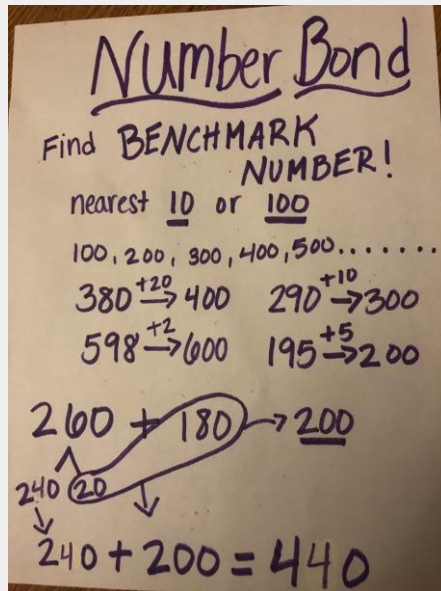 Number Bond
Find BENCHMARK
NUMBER!
nearest 10 or 100
100, 200, 300, 400, 500.......
380 +20→ 400 290 +10→ 300
598 +2→ 600 195 +5→ 200
260 + 180 → 200
240 20
240 + 200 = 440